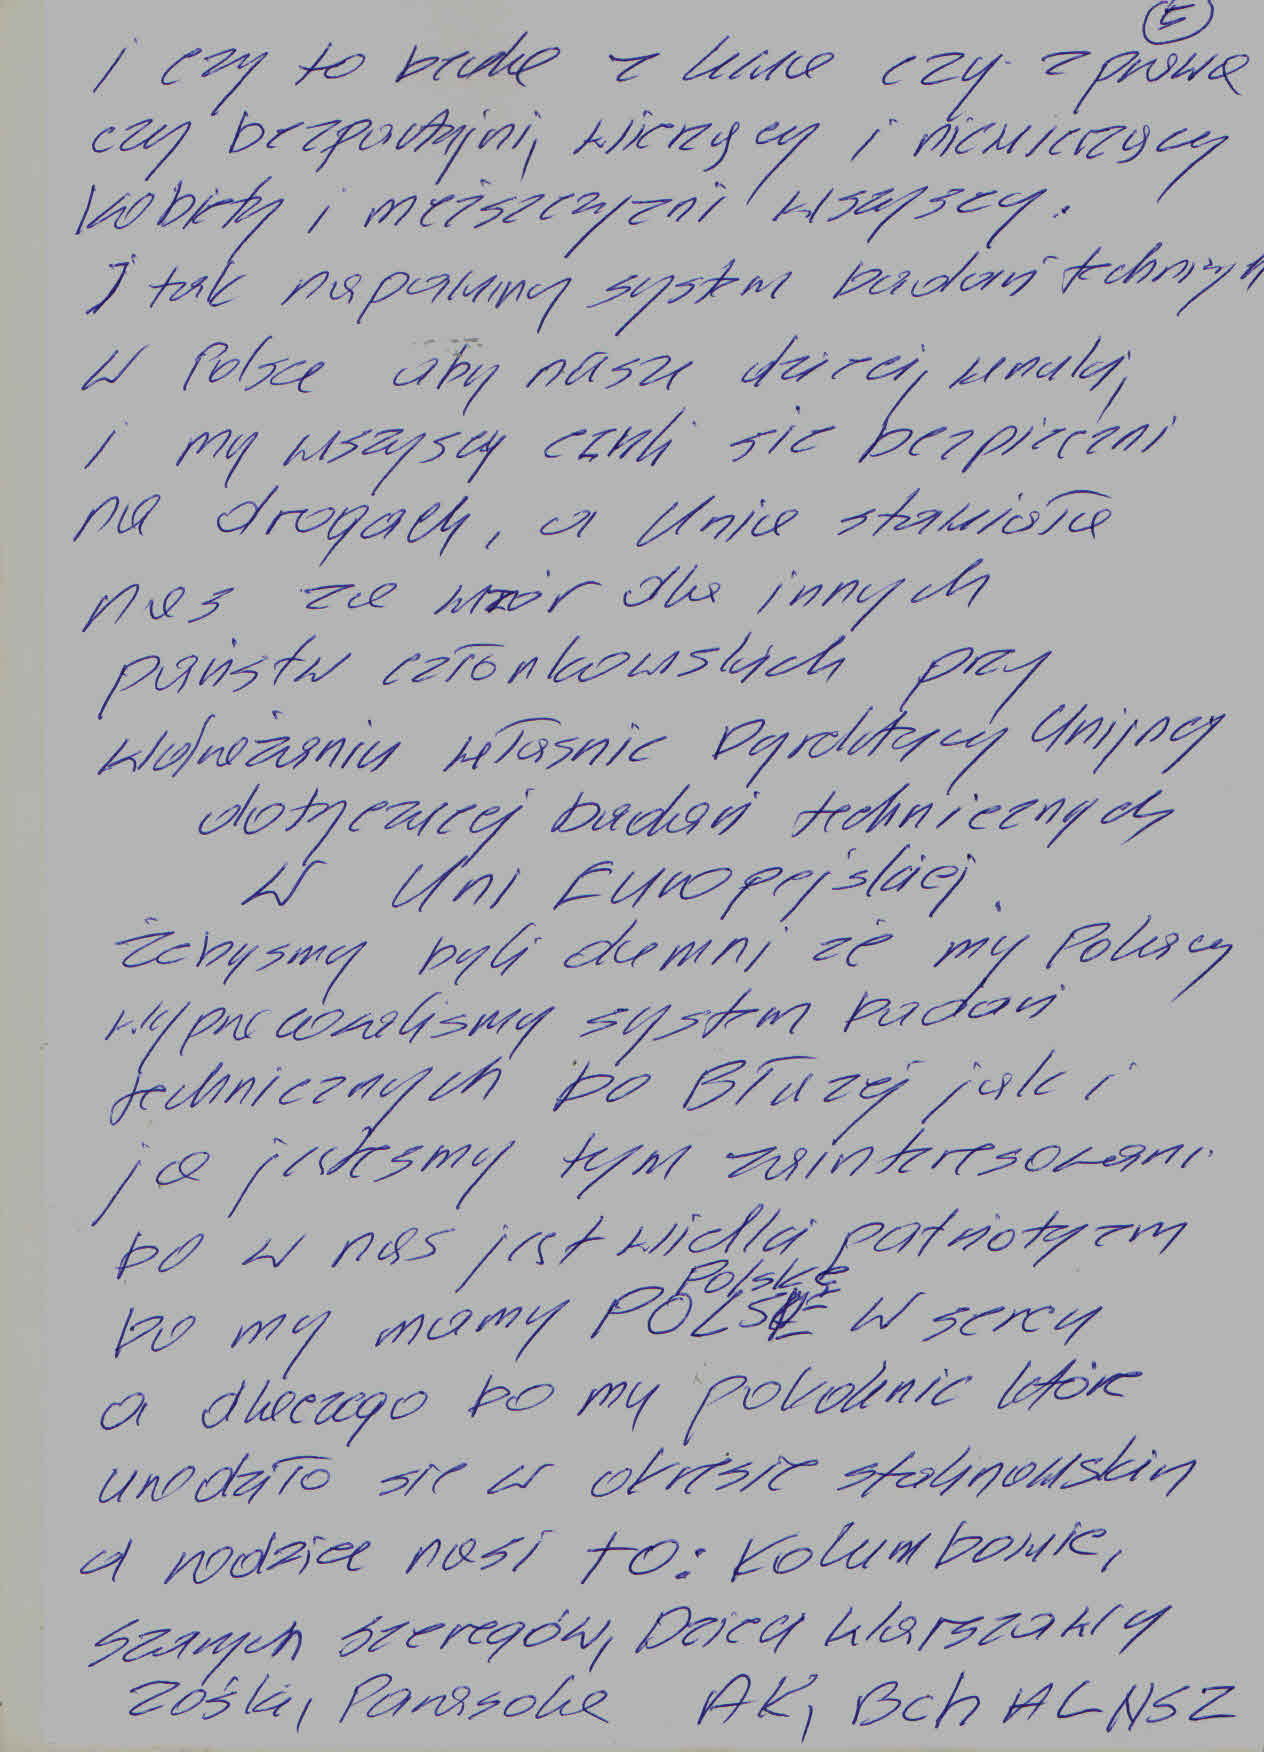 5
i czy to będe z lewa czy z prawa
czy bezpartyjni, wierzący i niewierzący
kobiety i męiszczyzni wszyscy.
I tak napawmy system badań technizn
w Polsce aby nasze dzieci, wnuki,
i my wszyscy czuli sie bezpieczni
na drogach, a Unia stawiała
nas za wzór dla innych
państw członkowskich przy
wdrażaniu własnie Dyrektywy Unijnej
dotyczącej badań technicznych
w Uni Europejskiej.
Żebysmy byli dumni że my Polacy
wypracowalismy system badań
technicznych bo Błużej jak i
ja jestesmy tym zainteresowani.
bo w nas jest wielki patriotyzm
Polskę
bo my mamy POLSKĘ w sercu
a dlaczego bo my pokolenie które
urodziło sie w okresie stalinowskim
a rodzice nasi to: Kolumbowie,
szarych szeregów, Dzieci Warszawy
Zośki, Parasola AK, Bch AL NSZ